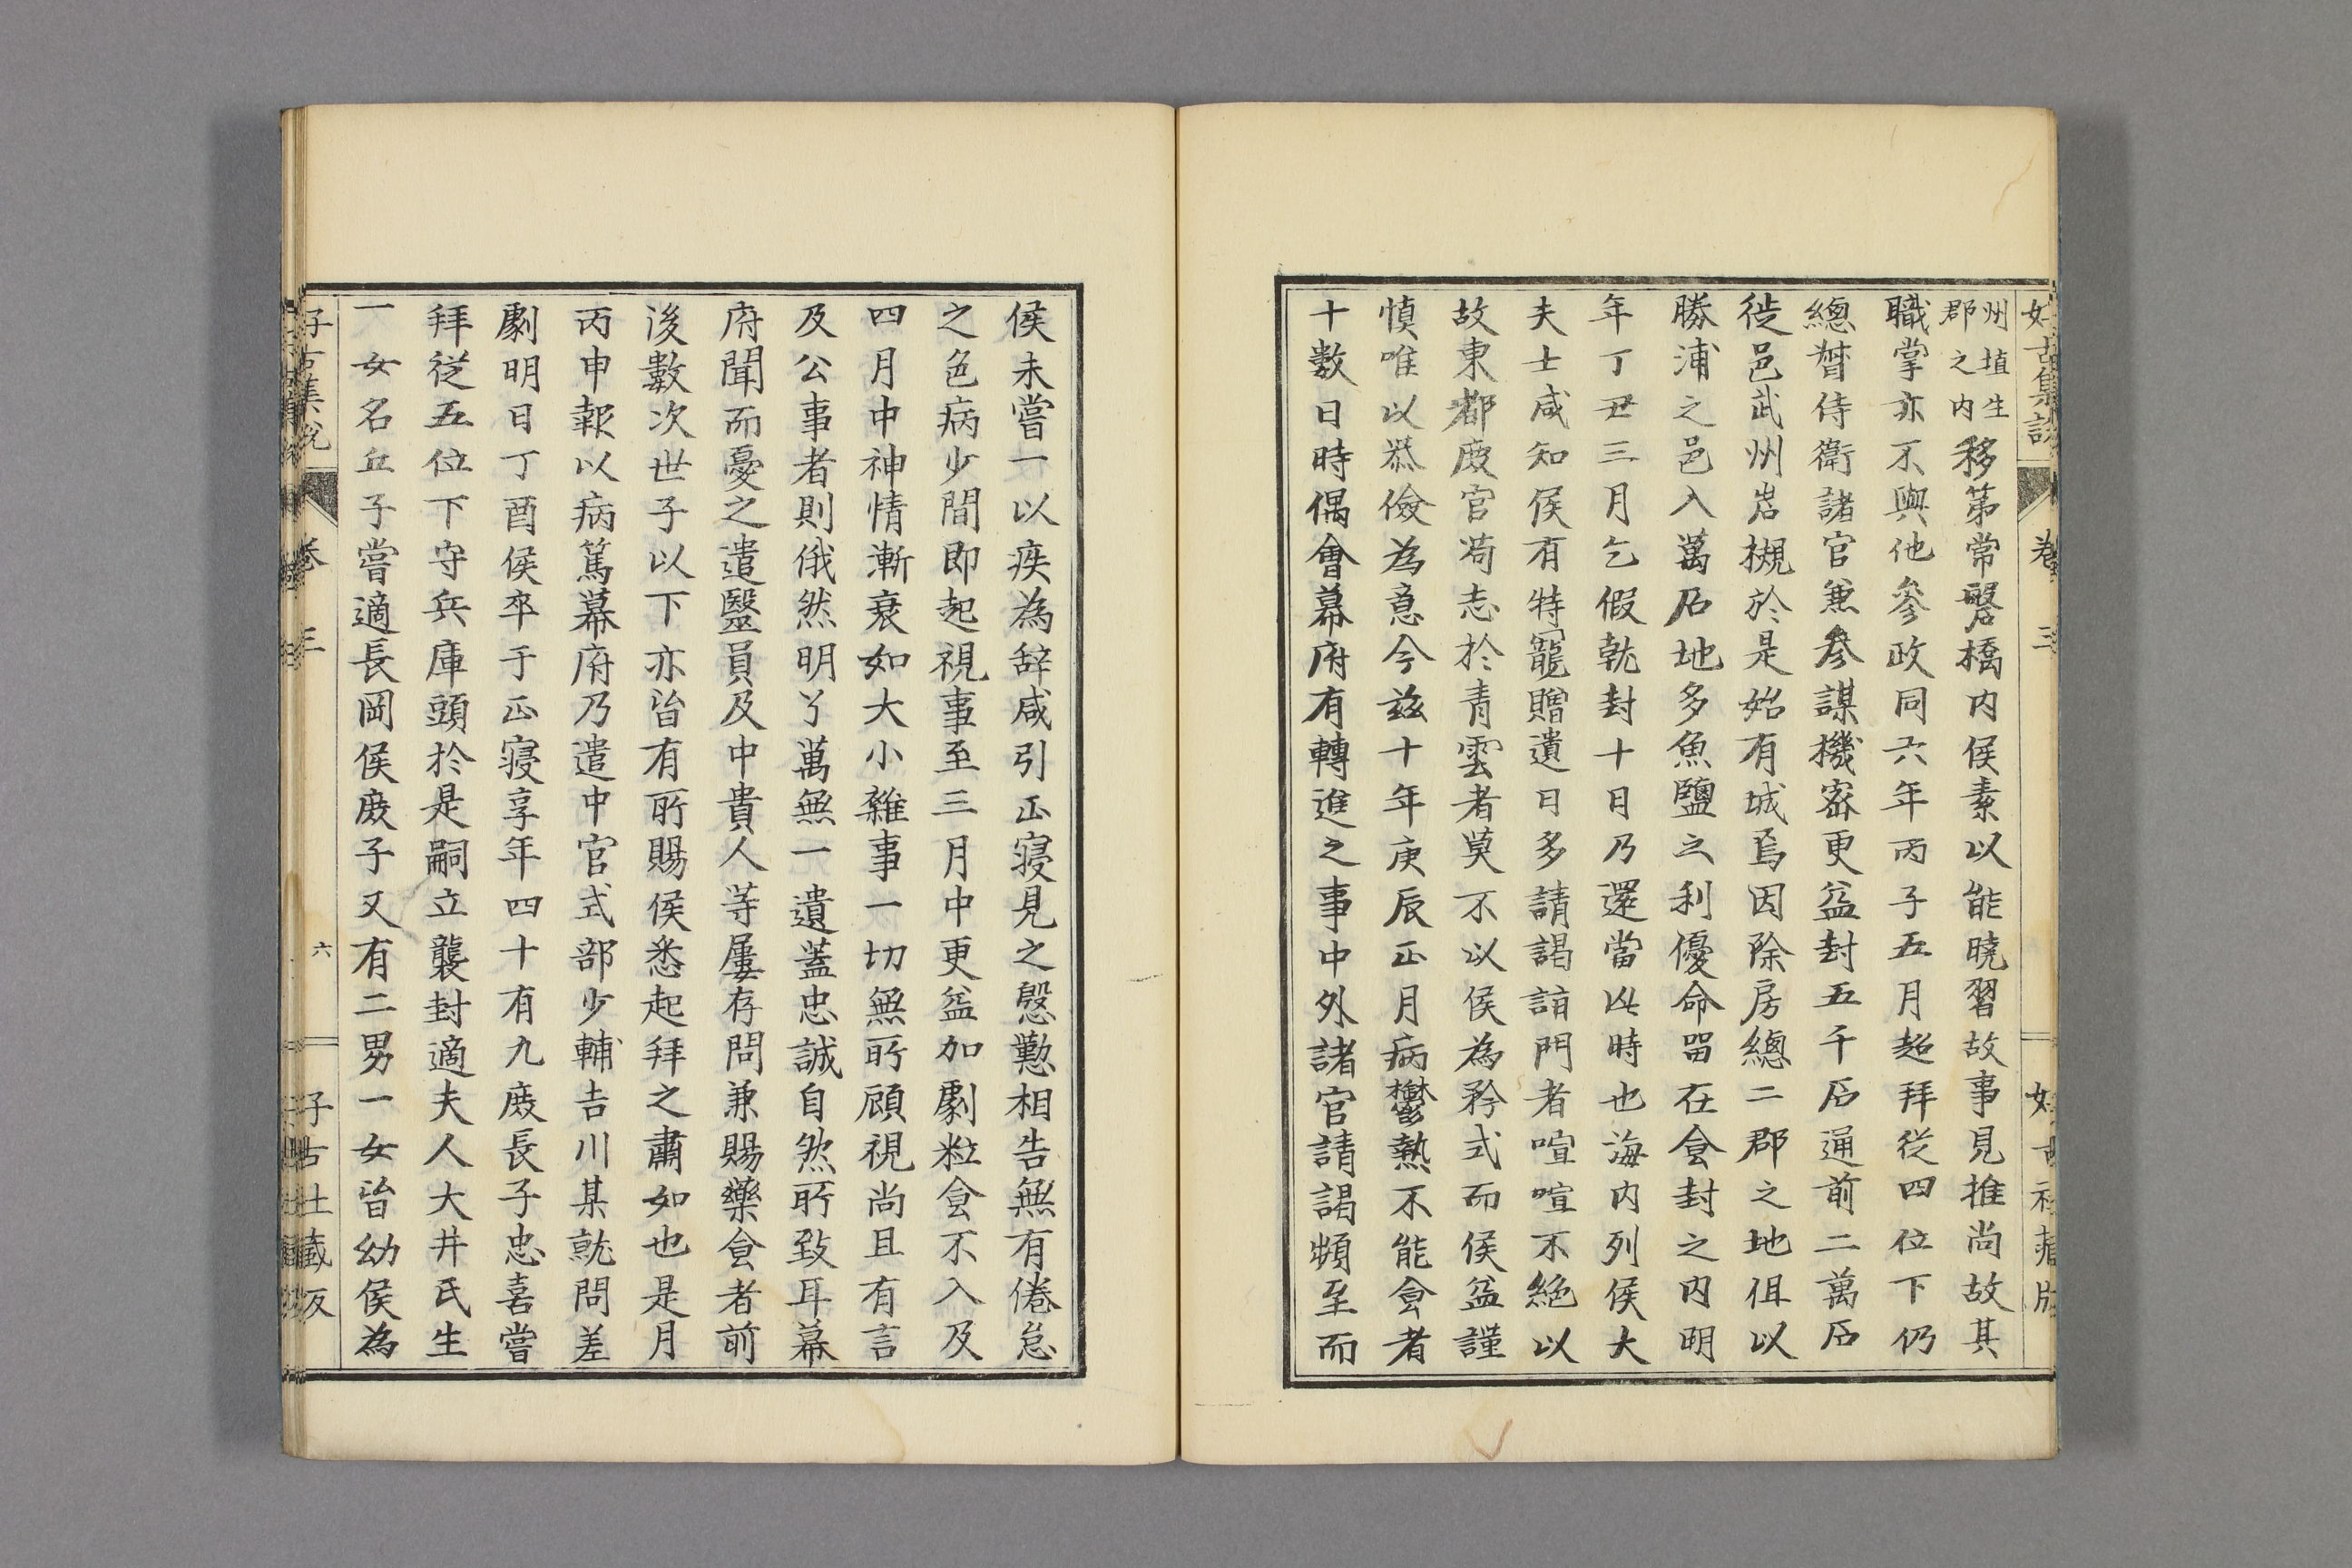 州埴生
郡之内
移第常磐橋内侯素以能曉習故事見推尚故其
職掌亦不與他參政同六年丙子五月超拜從四位下仍
總督侍衛諸官兼參謀機密更益封五千石通前二萬石
徙邑武州岩槻於是始有城焉因除房總二郡之地但以
勝浦之邑入萬石地多魚鹽之利優命留在食封之内明
年丁丑三月乞假就封十日乃還當此時也海内列侯大
夫士咸知侯有特寵贈遺日多請謁詣門者喧喧不絶以
故東都庶官苟志於青雲者莫不以侯為矜式而侯益謹
慎唯以恭儉為意今茲十年庚辰正月病鬱熱不能食者
十數日時偶會幕府有轉進之事中外諸官請謁頻至而
侯未嘗一以疾為辞咸引正寝見之慇懃相告無有倦怠
之色病少間即起視事至三月中更益加劇粒食不入及
四月中神情漸衰如大小雜事一切無所顧視尚且有言
及公事者則俄然明了萬無一遺蓋忠誠自然所致耳幕
府聞而憂之遣醫員及中貴人等屢存問兼賜藥食者前
後數次世子以下亦皆有所賜侯悉起拜之肅如也是月
丙申報以病篤幕府乃遣中官式部少輔吉川某就問差
劇明日丁酉侯卒于正寝享年四十有九庶長子忠喜嘗
拜從五位下守兵庫頭於是嗣立襲封適夫人大井氏生
一女名丘子嘗適長岡侯庶子又有二男一女皆幼侯為
好古集説
卷三
六